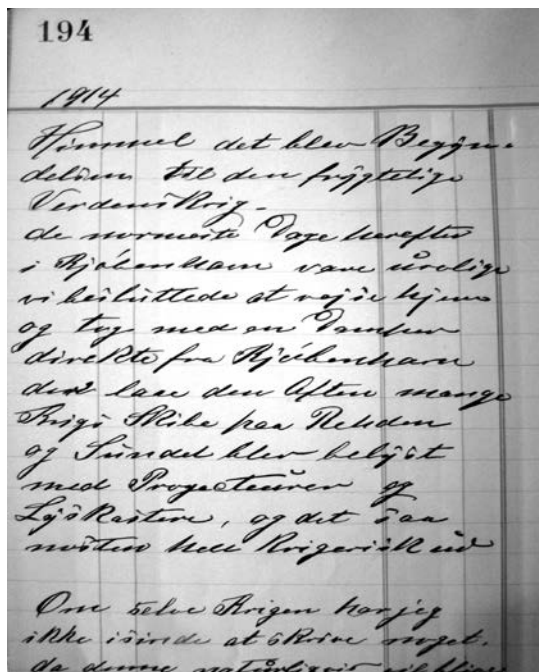 194
1914
Himmel det blev Begyn=
delsen til den frygtelige
Verdens Krig.
de nærmeste Dage herefter
i Kjöbenhavn vare urolige
vi besluttede at rejse hjem
og tog med en Damper
direkte fra Kjöbenhavn
der laae den Aften mange
Krigs Skibe paa Rehden
og Sundet blev belyst
med Progecteurer og
Lyskastere, og det saa
næsten helt Krigerisk ud
Om selve Krigen har jeg
ikke isinde at skrive noget,
da denne naturligvis vil blive